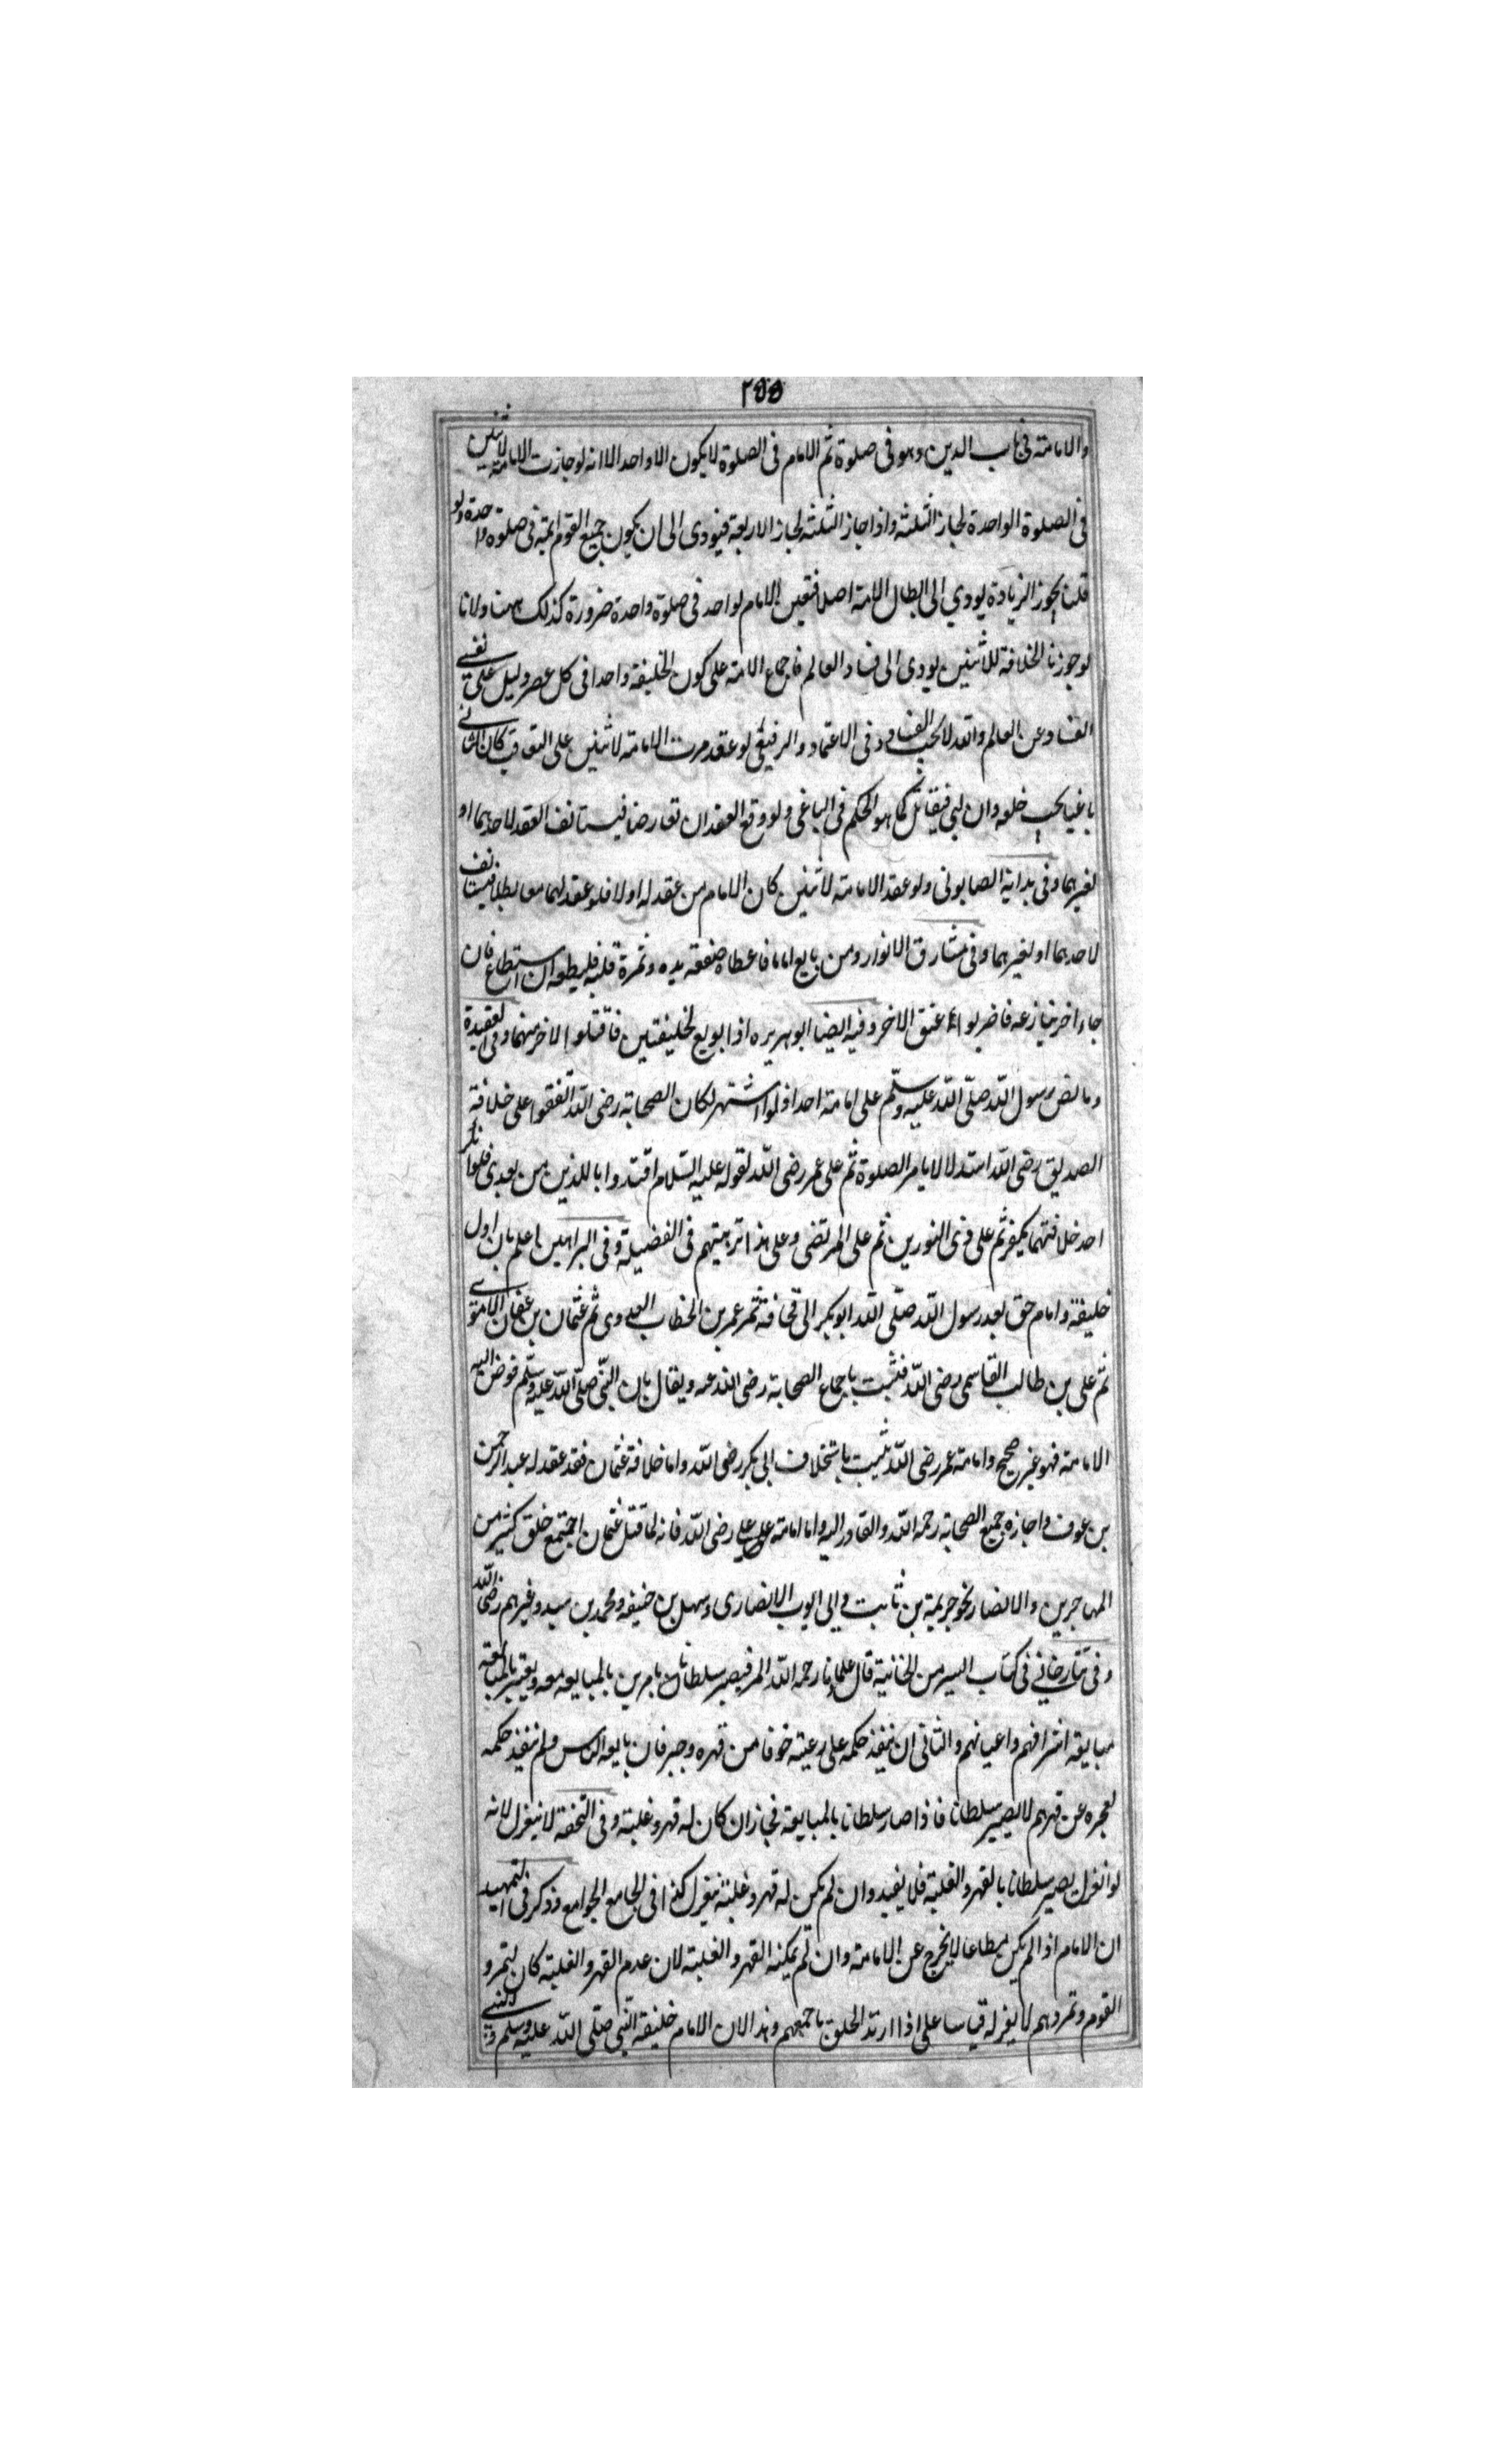 ٢٥٥
والامامة فى باب الدين وهو فى صلوة ثم الامام فى الصلوة لا يكون الا واحد الا انه لو جازت الامامة لاثنين
فى الصلوة الواحدة لجاز الثلثة واذا جاز الثلثة لجاز الاربعة فيودى الى ان يكون جميع القوم ائمة فى صلوة واحدة ولو
قلنا بجوز الزيادة يودي الى ابطال الامة اصلا فتعين الامام لواحد فى صلوة واحدة ضرورة كذلك ههنا ولانا
لو جوزنا الخلافة للاثنين يودى الى فساد العالم فاجماع الامة على كون الخليفة واحدا فى كل عصر دليل على نفى
الفساد عن العالم والله لا يحب الفساد وفى الاعتماد والرفيقى لو عقدت الامامة لاثنين على التعاقب كان الثانى
باغيا يجب خلعه وان ابى فيقاتل كما هو الحكم فى الباغى ولو وقع العقدان تعارضا فيستانف العقد لاحدهما او
لغيرهما وفى بداية الصابونى ولو عقد الامامة لاثنين كان الامام من عقد له اولا فلو عقد لهما معا بطلا فيستانف
لاحدهما او لغيرهما وفى مشارق الانوار ومن بايع اماما فاعطاه صفقة يده وثمرة قلبه فليطعه ان استطاع فان
جاء اخر ينازعه فاضربوا عنق الاخر وفيه ايضا ابو هريره اذا بويع لخليفتين فاقتلوا الاخر منهما وفى العقيدة
وما نص رسول الله صلى الله عليه وسلم على امامة احد اذ لو اشتهر لكان الصحابة رضى الله اتفقوا على خلافة
الصديق رضى الله استدلالا بامر الصلوة ثم على عمر رضى الله لقوله عليه السلام اقتدوا باللذين من بعدى فلو انكر
احد خلافتهما يكفر ثم على ذى النورين ثم على المرتضى وعلى هذا ترتيبهم فى الفضيلة وفى البراهين اعلم بان اول
خليفة وامام حق بعد رسول الله صلى الله ابو بكر ابى قحافة ثم عمر بن الخطاب العدوى ثم عثمان بن عفان الاموى
ثم على بن طالب القاسمى رضى الله فثبت باجماع الصحابة رضى الله عنه ويقال بان النبى صلى الله عليه وسلم فوض اليه
الامامة فهو غير صحيح وامامة عمر رضى الله ثبت باستخلاف ابى بكر رضى الله واما خلافة عثمان فقد عقد له عبد الرحمن
بن عوف واجازه جميع الصحابة رحمه الله وانقادوا اليه واما امامة على رضى الله فانه لما قتل عثمان اجتمع خلق كثير من
المهاجرين والانصار نحو جريمة بن ثابت وابى ايوب الانصارى وسهل بن حنيفه ومحمد بن سيد وغيرهم رضى الله
وفى تتارخانى فى كتاب السير من الخانية قال علماؤنا رحمه الله المر فيصير سلطانا بامرين بالمبايعه معه ويعتبر بالمبايعة
مبايعة اشرافهم واعيانهم والثانى ان ينفذ حكمه على رعيته خوفا من قهره وجبر فان بايعه الناس ولم ينفذ حكمه
لعجزه عن قهرهم لا يصير سلطانا فاذا صار سلطانا بالمبايعة فجاز ان كان له قهر وغلبة وفى التحفة لا ينعزل لانه
لو انعزل يصير سلطانا بالقهر والغلبة فلا يفيد وان لم يكن له قهر وغلبة ينعزل كذا فى الجامع الجوامع وذكر فى التمهيد
ان الامام اذا لم يكن مطاعا لا يخرج عن الامامة وان لم يمكنه القهر والغلبة لان عدم القهر والغلبة كان لتمرد
القوم وتمردهم لا يعزله قياسا على اذا ارتد الخلق باجمعهم وهذا لان الامام خليفة النبى صلى الله عليه وسلم والنبى